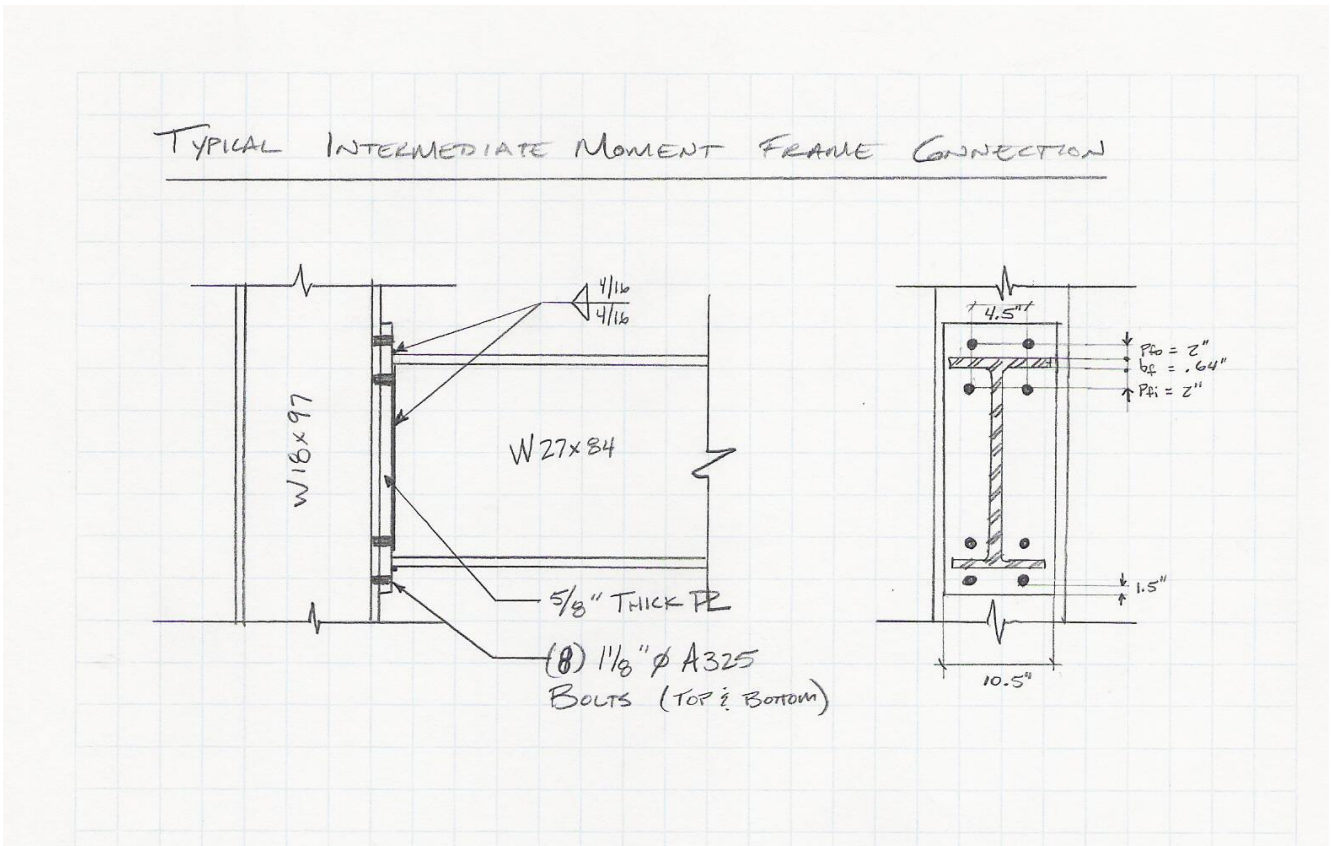 TYPICAL INTERMEDIATE MOMENT FRAME CONNECTION
4/16
4/16
W18x97
W27x84
5/8" THICK PL
(8) 1 1/8" ø A325
BOLTS (TOP & BOTTOM)
4.5"
Pfo = 2"
bf = .64"
Pfi = 2"
1.5"
10.5"